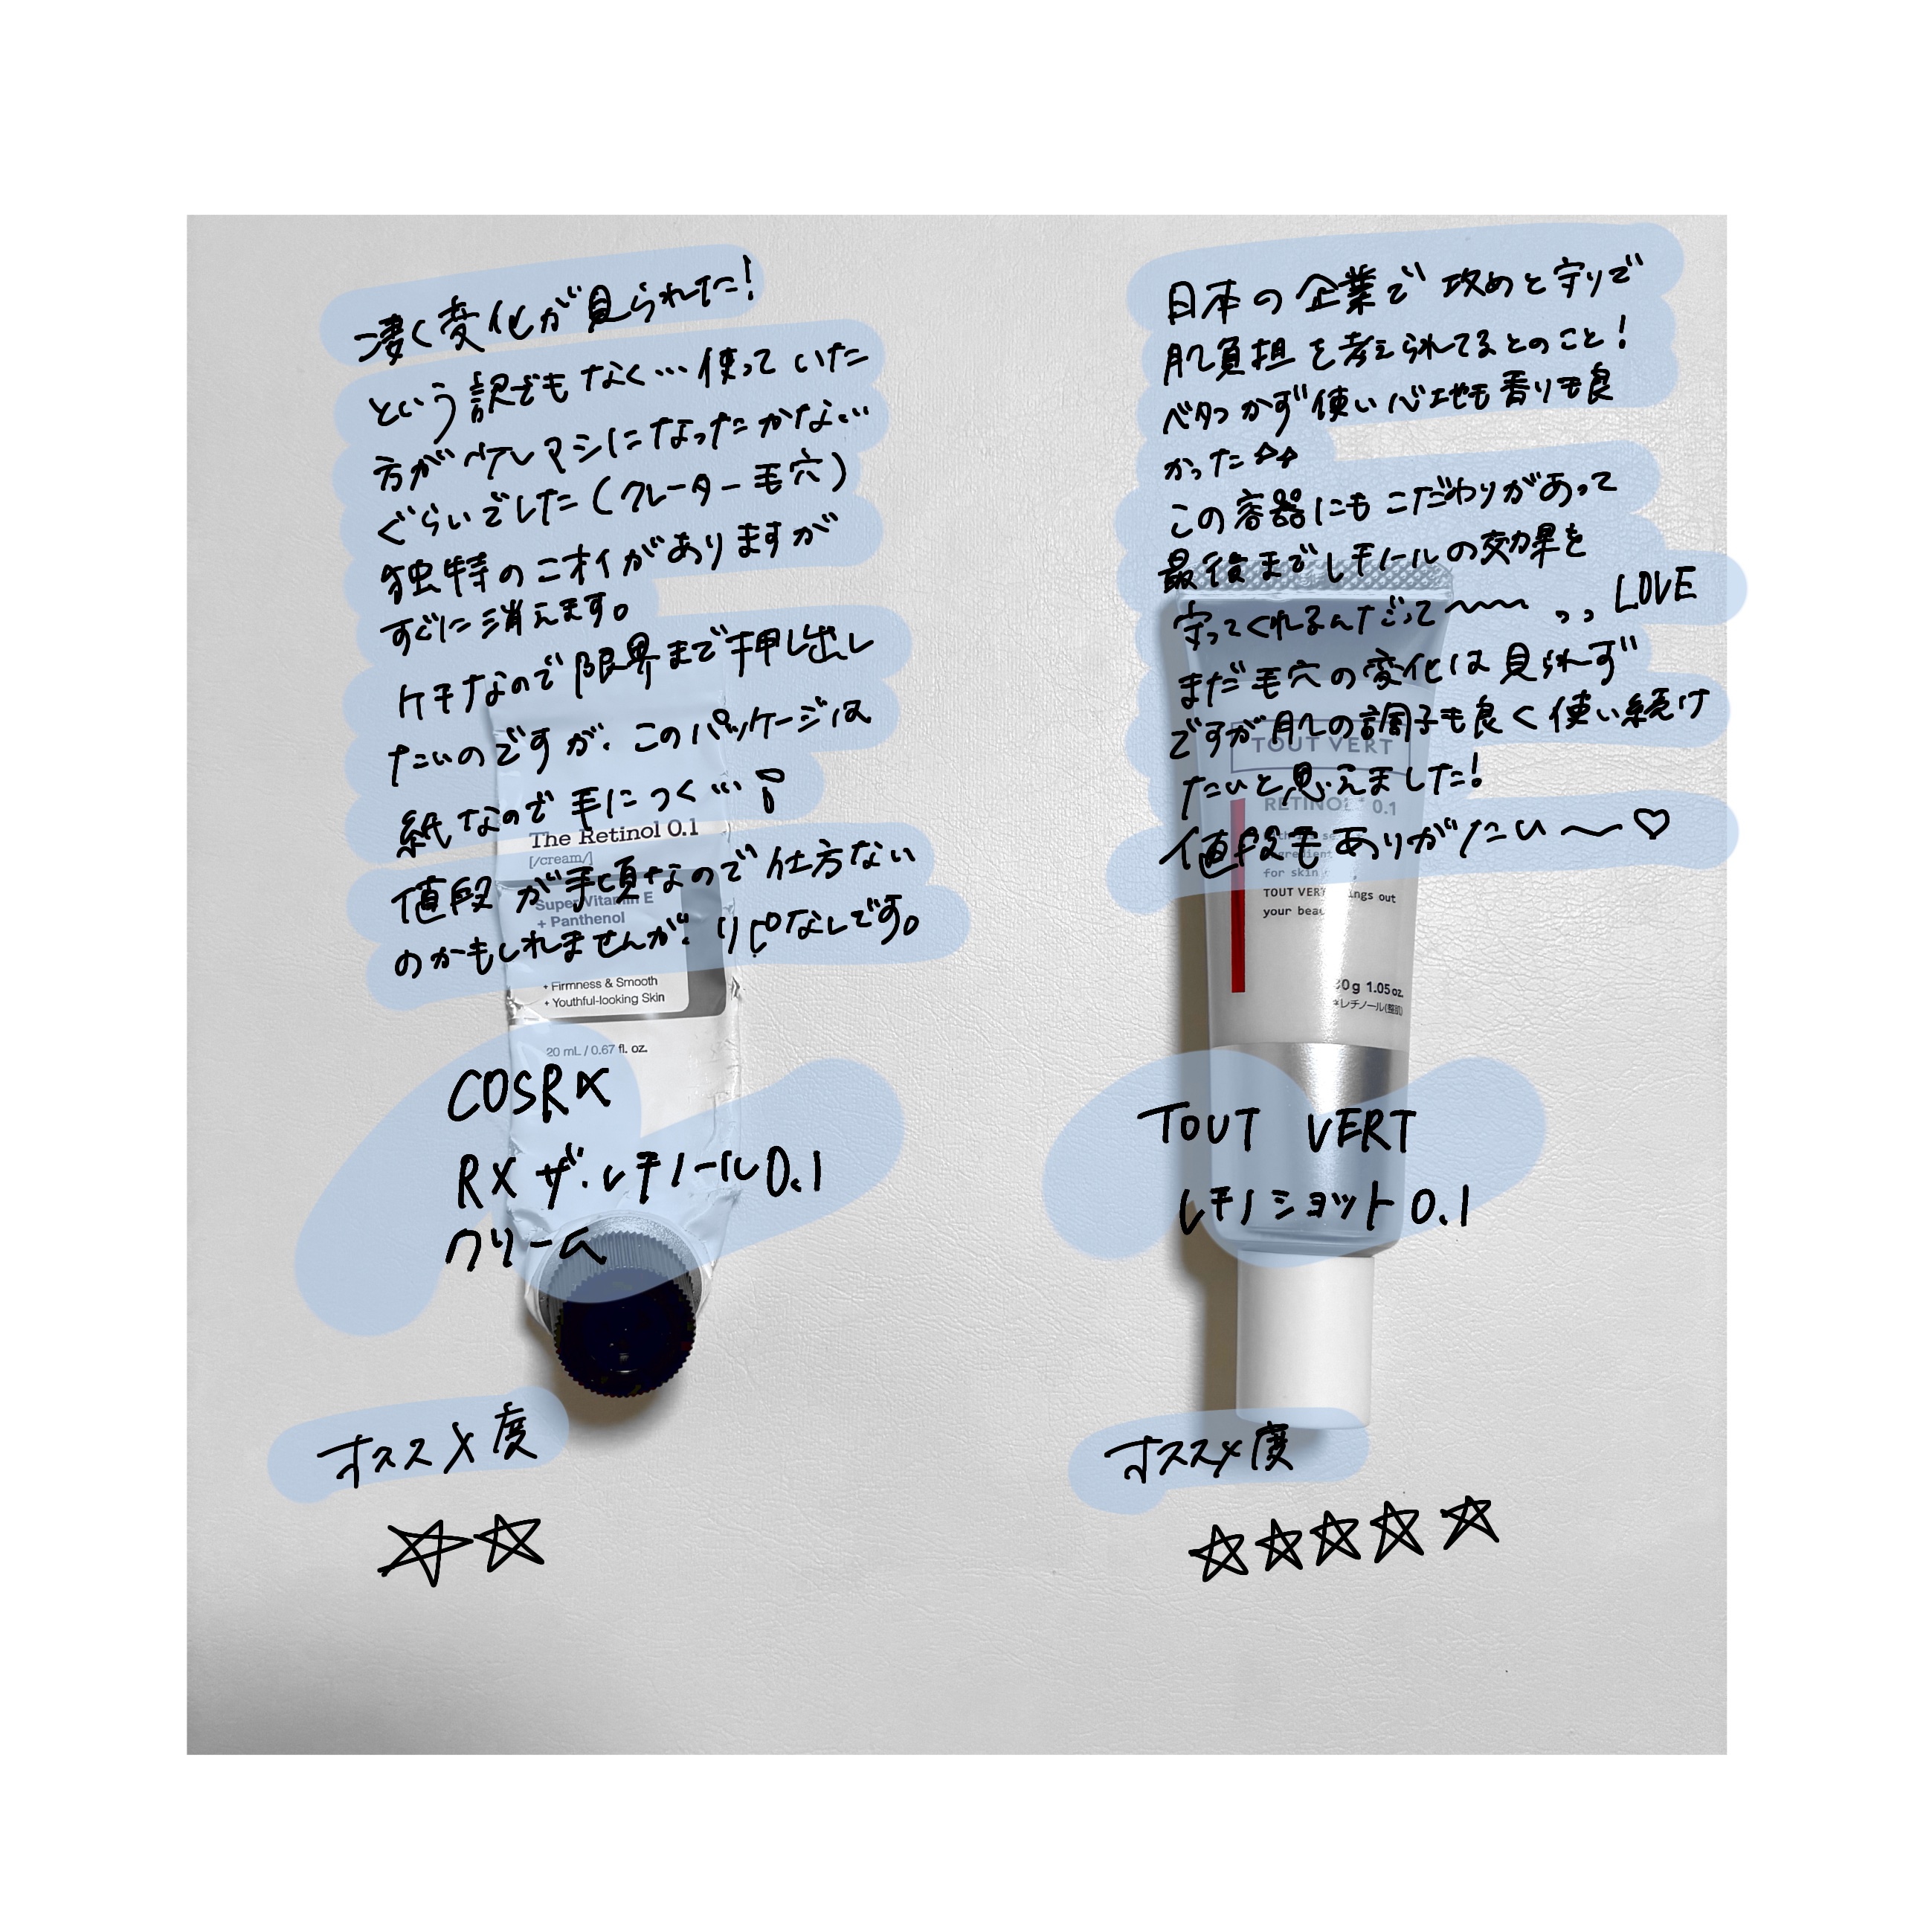 凄く変化が見られた!
という訳でもなく…使っていた
方が
マシになったかな…
ぐらいでした(クレーター毛穴)
独特のニオイがありますが
すぐに消えます。
ケチなので限界まで押し出し
たいのですが、このパッケージは
紙なので手につく…
値段が手頃なので仕方ない
のかもしれませんが、リピなしです。
The Retinol 0.1
[/cream/]
Super Vitamin E
+ Panthenol
+ Firmness & Smooth
+ Youthful-looking Skin
20 mL / 0.67 fl. oz.
COSRX
RX ザ・レチノール0.1
クリーム
オススメ度
☆☆
日本の企業で攻めと守りで
肌負担を考えられてるとのこと!
ベタつかず使い心地も香りも良
かった✧✧
この容器にもこだわりがあって
最後までレチノールの効果を
守ってくれるんだって〜〜〜 LOVE
まだ毛穴の変化は見られず
ですが肌の調子も良く使い続け
たいと思えました!
値段もありがたい〜♡
TOUT VERT
RETINO 0.1
for skin
TOUT VERT ings out
your beau
0g 1.05 oz.
*レチノール(整肌)
TOUT VERT
レチノショット0.1
オススメ度
☆☆☆☆☆